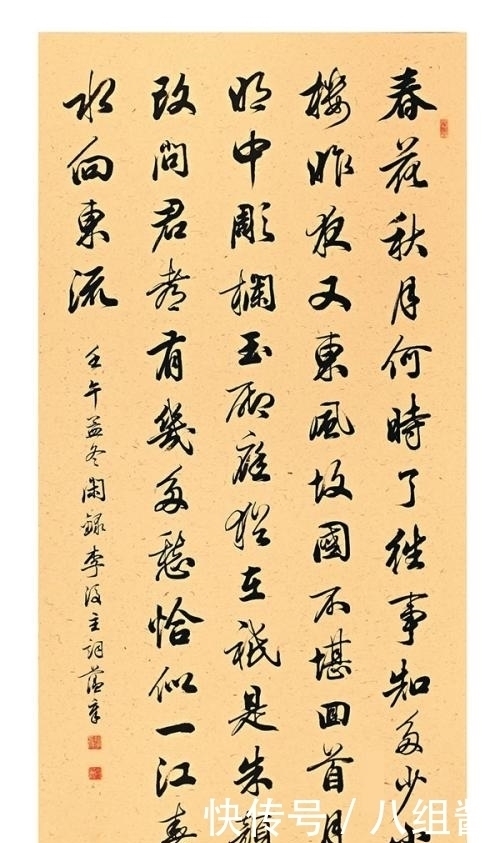 春花秋月何時了往事知多少小
樓昨夜又東風故國不堪回首月
明中彫欄玉砌應猶在祇是朱顏
改問君都有幾多愁恰似一江春
水向東流
壬午孟冬閑錄李後主詞
快传号 / 八组酱